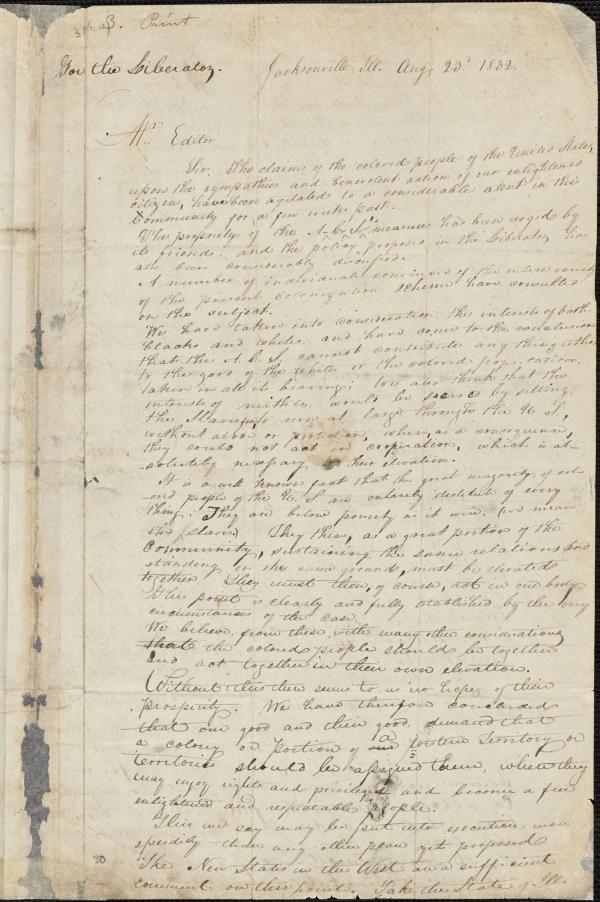 3. Print
For the Liberator.
Jacksonville Ill. Aug. 23d 1832.
Mr. Editor
Sir, The claims of the colored people of the United States,
upon the sympathies and benevolent action of our enlightened
citizens, have been agitated to a considerable extent in this
Community for a few weeks past.
The propriety of the A. C. S.'s measures has been urged by
its friends, and the policy proposed in the Liberator, has
also been considerably discussed.
A number of individuals convinced of the entire
of the present Colonization scheme have consulted
on the subject.
We have taken into consideration the interests of both
blacks and whites, and have come to the conclusion
that the A. C. S. cannot contribute any thing either
to the good of the whites or the colored population,
taken in all its bearings; we also think that the
interests of neither would be secured by setting
the Slaves to run at large through the U. S.,
without abode or protection, where, as a consequence,
they could not act in cooperation, which is ab-
-solutely necessary to their elevation.
It is a well known fact that the great majority of col-
-ored people of the U. S. are entirely destitute of every
thing. They are below poverty as it were. (we mean
the slaves) They then, as a great portion of the
Community, sustaining the same relations and
standing on the same ground, must be elevated
together. They must then, of course, act in one body.
This point is clearly and fully established by the very
circumstances of the case.
We believe from these, with many other considerations
that the colored people should be together
and act together in their own elevation.
Without this there seems to us no hope of their
prosperity. We have therefore concluded
that our good and their good demand that
a colony or portion of a Western Territory or
territories should be assigned them, where they
may enjoy rights and privileges and become a free
enlightened and respectable people.
This we say may be put into execution more
speedily than any other plan yet proposed
The New States in the West are a sufficient
comment on this point. Take the State of Ill.
30